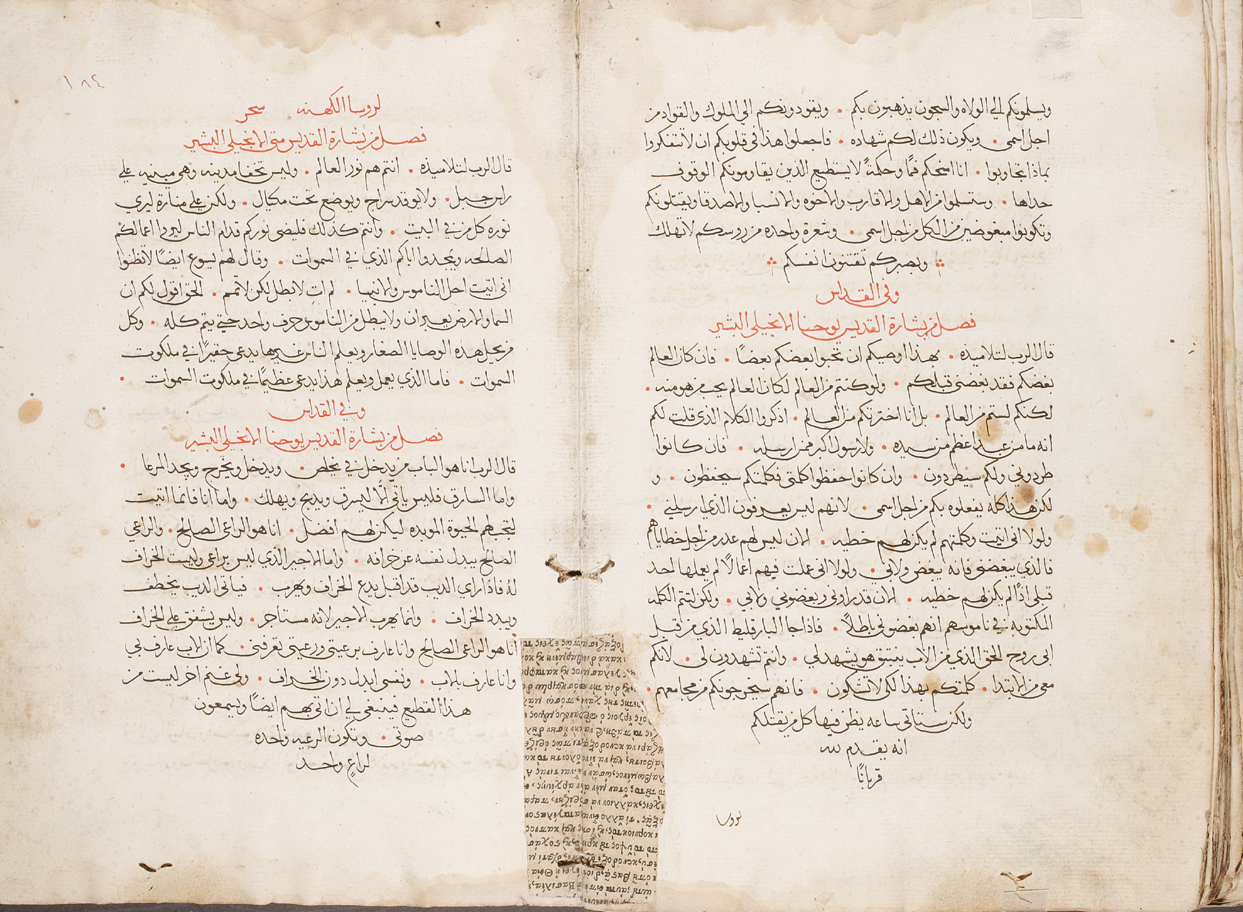 ويسلمونكم الى الولاه والسجون يذهبون بكم • ويقودونكم الي الملوك والقواد من
اجل اسمي • ويكون ذلك لكم شهاده • فاجعلوا هذا في قلوبكم ان لا تتفكروا
بماذا تجاوبوا • انا امنحكم فمًا وحكمةً لا يستطيع الذين يقاومونكم الوقوف
حداها • وستسلموا من الاهل والاقارب والاخوه والانسبا والاصدقا ويقتلونكم
وتكونوا مبغوضين من الكل من اجل اسمي • وشعرة واحده من روسكم لا تهلك
وبصبركم تقتنون انفسكم
وفي القداس
فصل من بشارة القديس يوحنا الانجيلي البشير
قال الرب لتلاميذه • بهذا اوصيكم ان تحبوا بعضكم بعضًا • فان كان العالم
يبغضكم فقد بغضني قبلكم • ولو كنتم من العالم لكان العالم يحب من هو منه •
لكنكم لستم من العالم • بل انا اخترتكم من العالم • اذكروا الكلام الذي قلت لكم
انه ما من عبد اعظم من سيده • ولا رسول اكبر ممن ارسله • فان كانوا
طردوني ولكم سيطردون • وان كانوا حفظوا كلمتي فكلمتكم سيحفظون • و
لكن هذا كله يفعلوه بكم من اجل اسمي • لانهم ليس يعرفون الذي ارسلني •
ولولا اني اتيت وكلمتهم لم يكن لهم خطيه • الان ليس لهم عذر من اجل خطاياهم
فالذي يبغضني فانه يبغض ولابي • ولولا اني عملت فيهم اعمالًا لم يعملها احد
قبلي اذًا لم يكن لهم خطيه • الان قد راوني وبغضوني ولابي • ولكن لتتم الكلمه
المكتوبه في ناموسهم انهم بغضوني باطلًا • فاذا جا البارقليط الذي من قبل
ابي روح الحق الذي من الاب ينبثق هو يشهد لي • وانتم تشهدون لي • لانكم
معي من الابتدا • كلمتكم بهذا لكي لا تشكون • فانهم سيخرجونكم من مجامعهم •
ولكن ستاتي ساعه يظن فيها كل من يقتلكم
انه يقدم لله
قربانًا
لروسا
١٨٤
لروسا الكهنه سحر
فصل من بشارة القديس متي الانجيلي البشير
قال الرب لتلاميذه • انتم هم نور العالم • وليس تخفا مدينه وهي مبنيه علي
راس جبل • ولا يوقد سراج ويوضع تحت مكيال • ولكن علي منارة ليري
نوره كل من في البيت • وانتم كذلك فليضي نوركم قدام الناس ليروا اعمالكم
الصالحه ويمجدوا اباكم الذي في السموات • وقال لهم يسوع ايضًا لا تظنوا
اني اتيت احل الناموس والانبيا • لم ات لابطل لكن لاتمم • الحق اقول لكم ان
السما والارض يعبران ولا يبطل من الناموس حرف واحد حتي يتم كله • وكل
من يحل هذه الوصايا الصغار ويعلم الناس غيرها يدعي حقيرًا في ملكوت
السموات • فاما الذي يعمل ويعلم هذا يدعي عظيمًا في ملكوت السموات •
وفي القداس
فصل من بشارة القديس يوحنا الانجيلي البشير
قال الرب انا هو الباب من يدخل بي يخلص • ويدخل ويخرج ويجد المرعا •
واما السارق فليس ياتي الا ليسرق ويذبح ويهلك • واما انا فانما اتيت
لتجب لهم الحيوة الموبده ليكن لهم افضل • انا هو الراعي الصالح • والراعي
الصالح يبدل نفسه عن خرافه • واما الاجير الذي ليس براعي وليست الخراف
له فاذا راي الديب قد اقبل يدع الخراف ويهرب • فياتي الديب يخطف
ويبدد الخراف • وانما يهرب الاجير لانه مستاجر • وليس يشفق علي الخراف
انا هو الراعي الصالح وانا عارف برعيتي ورعيتي تعرفني • كما ان الاب عارف بي
وانا عارف بالاب • ونفسي ابدل دون الخراف • ولي غنم اخر ليست من
هذا القطيع فينبغي لي ان اتي بهم ايضًا ويسمعون
صوتي • وتكون الرعيه واحده
لراعٍ واحد